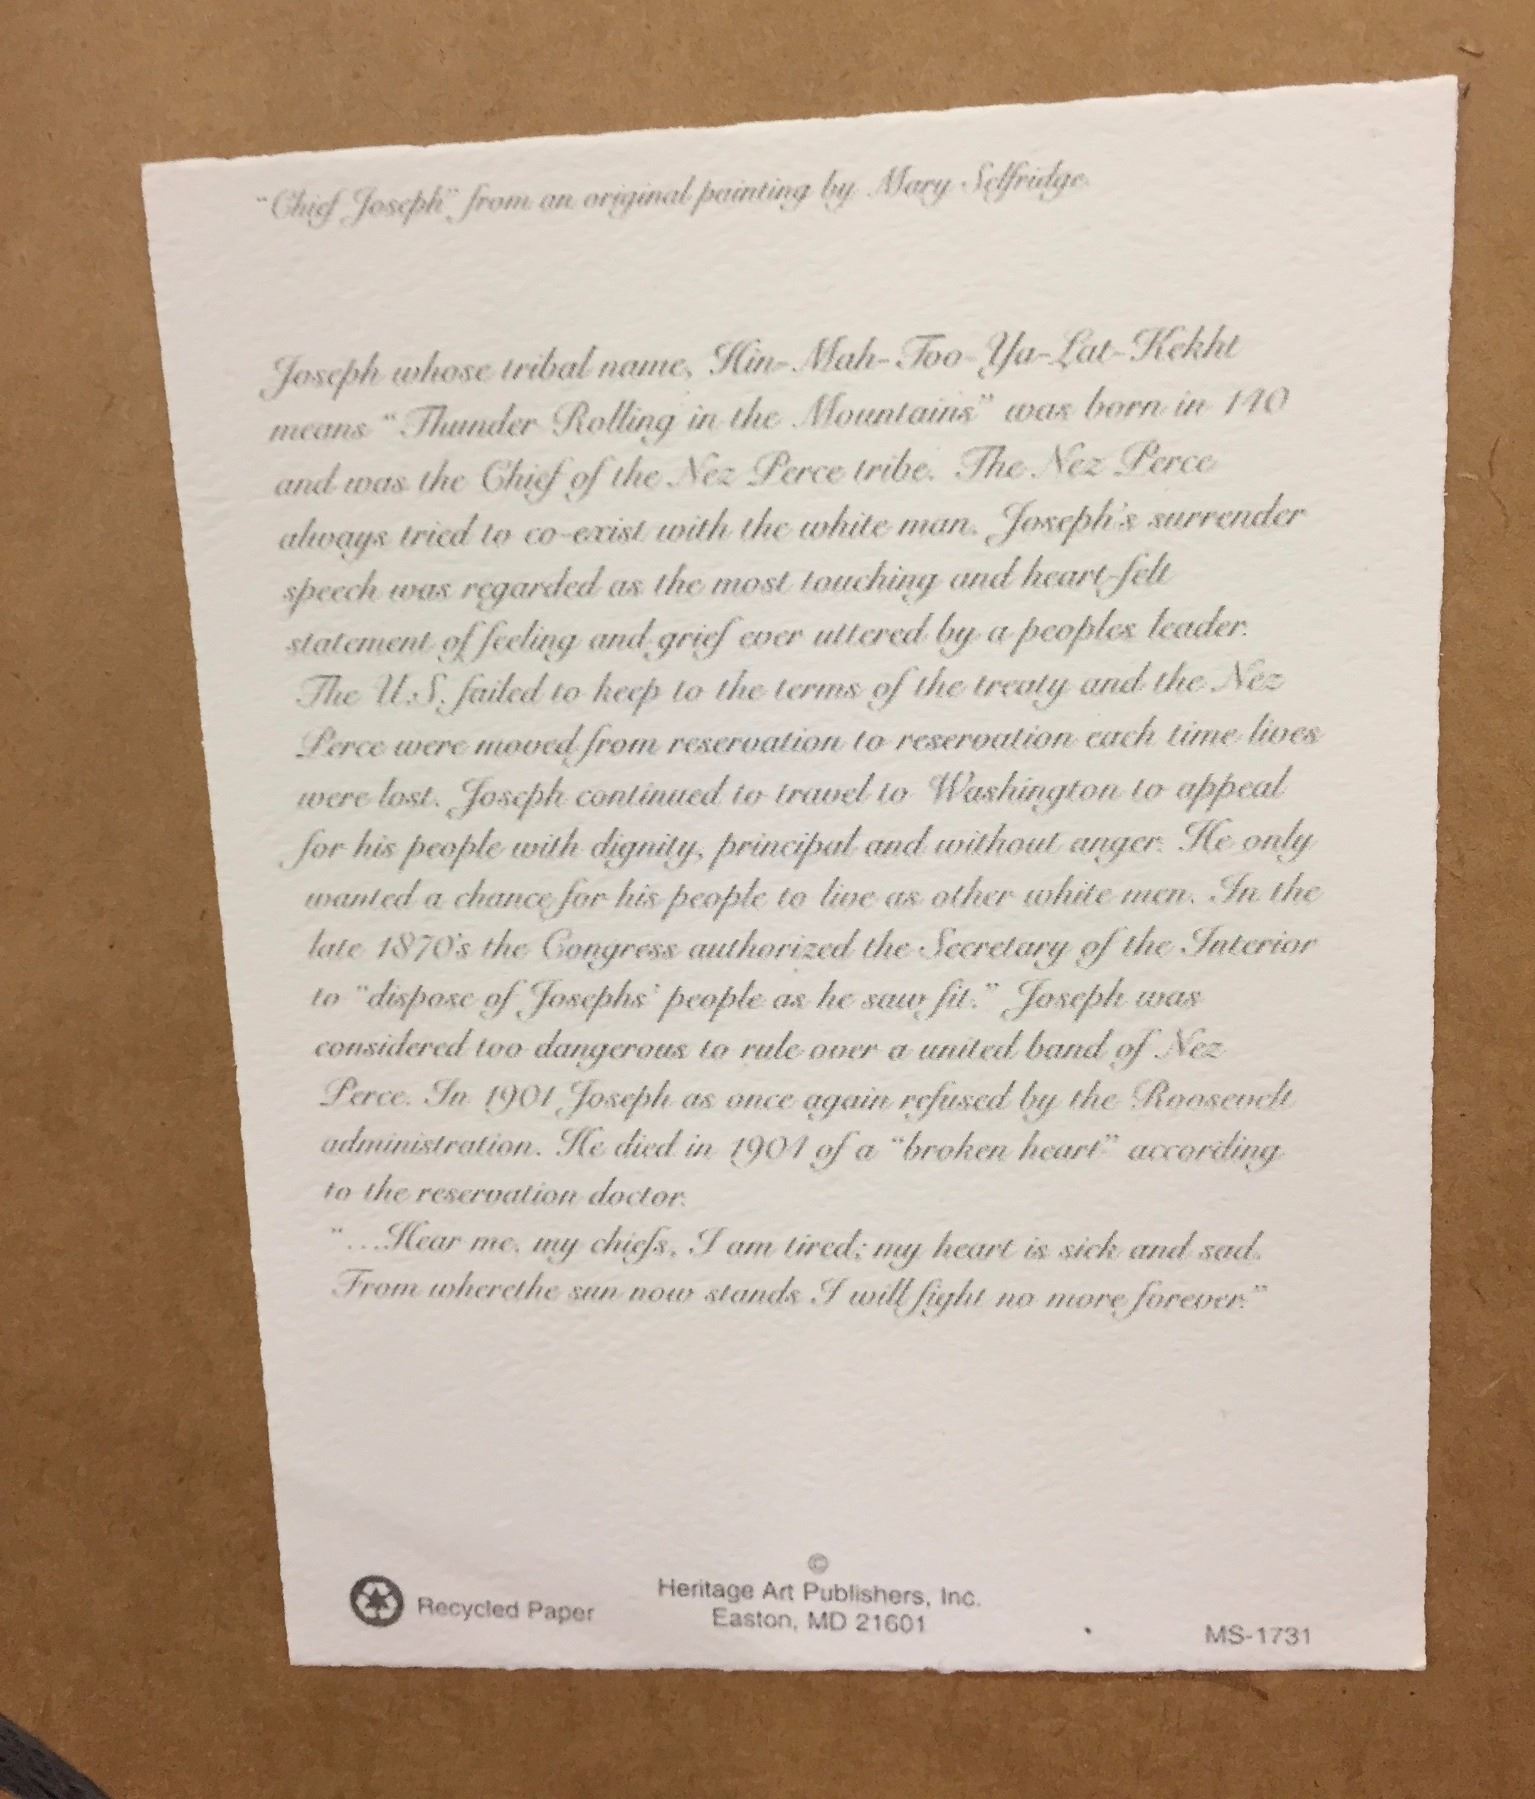 "Chief Joseph" from an original painting by Mary Selfridge.
Joseph whose tribal name, Hin-Mah-Too-Ya-Lat-Kekht
means "Thunder Rolling in the Mountains" was born in 140
and was the Chief of the Nez Perce tribe. The Nez Perce
always tried to co-exist with the white man. Joseph's surrender
speech was regarded as the most touching and heart-felt
statement of feeling and grief ever uttered by a peoples leader.
The U.S. failed to keep to the terms of the treaty and the Nez
Perce were moved from reservation to reservation each time lives
were lost. Joseph continued to travel to Washington to appeal
for his people with dignity, principal and without anger. He only
wanted a chance for his people to live as other white men. In the
late 1870's the Congress authorized the Secretary of the Interior
to "dispose of Josephs' people as he saw fit." Joseph was
considered too dangerous to rule over a united band of Nez
Perce. In 1901 Joseph as once again refused by the Roosevelt
administration. He died in 1904 of a "broken heart" according
to the reservation doctor.
"...Hear me, my chiefs, I am tired; my heart is sick and sad.
From wherethe sun now stands I will fight no more forever."
©
Heritage Art Publishers, Inc.
Recycled Paper
Easton, MD 21601
MS-1731